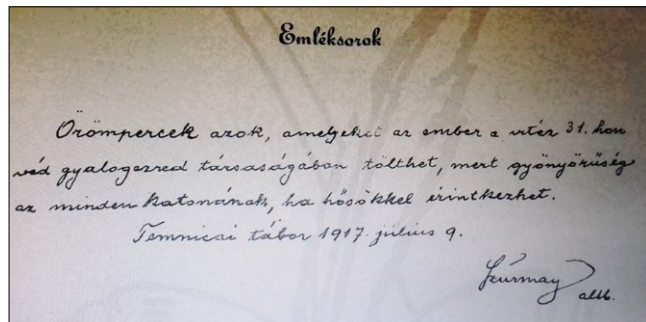 Emléksorok
Örömpercek azok, amelyeket az ember a vitéz 31. hon
véd gyalogezred társaságában tölthet, mert gyönyörüség
az minden katonának, ha hősökkel érintkezhet.
Temnicai tábor 1917. július 9.
Szurmay
altb.